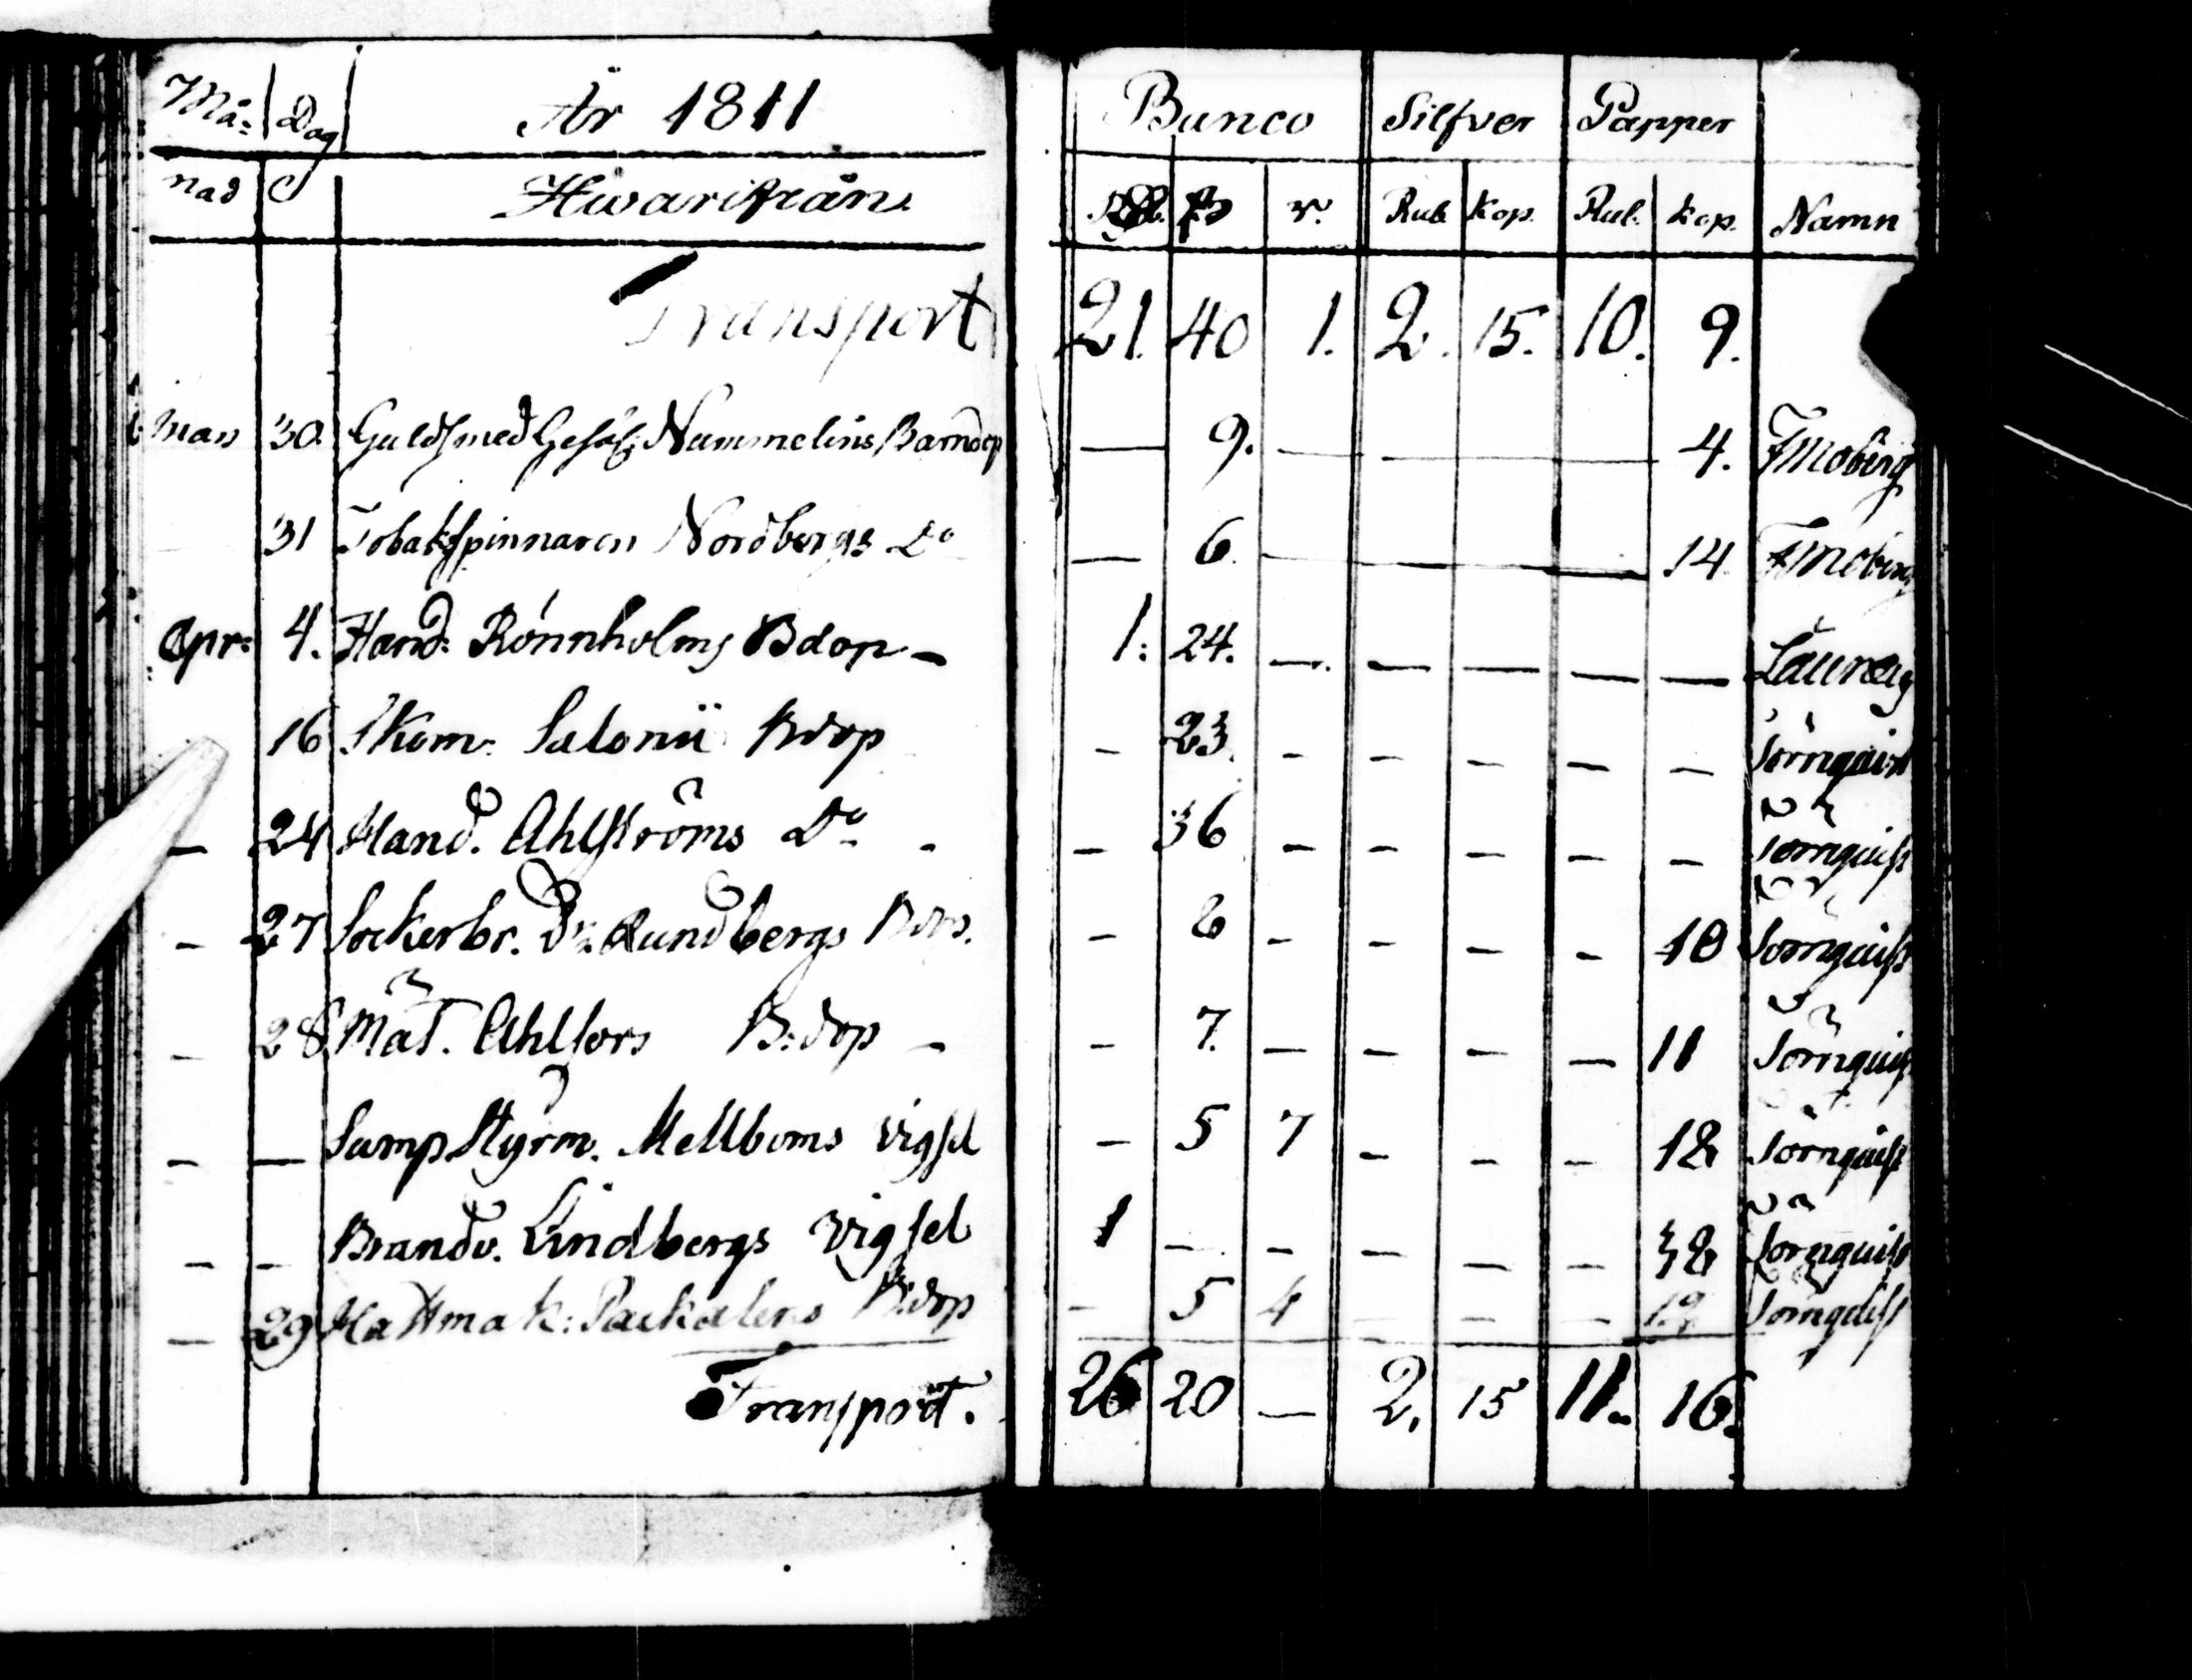 Må= Dag År 1811 Banco Silfver Papper
nad Hwarifrån r. Rub Kop. Rub. kop. Namn
Transport 21. 40 1. 2. 15. 10. 9.
mars 30. Guldsmed Gesäl: Nummelins Barndop — 9. — — — — 4. FMoberg
31 Tobakspinnaren Nordbergs Do — 6. — — — — 14. FMoberg
Apr: 4. Hand: Rönnholms Bdop — 1: 24. — — — — — Lauræus
16 Skom. Salonii Bdop - 23. - - - - - Törnquist
— 24 Hand. Ahlströms Do - - 36 - - - - - Törnquist
- 27 Sockerbr. Dr. Rundbergs Bdop. - 6 - - - - 10 Törnquist
- 28. Mat. Ahlfors B:dop - - 7. - - - - 11 Törnquist
- — Samp Styrm. Mellboms vigsel - 5 7 - - - 12 Törnquist
- - Brandv. Lindbergs vigsel 1 - - - - - 32 Törnquist
- 29 Hattmak: Packalens B:dop - 5 4 - - - 12 Törnquist
Transport. 26 20 — 2. 15 11. 16.